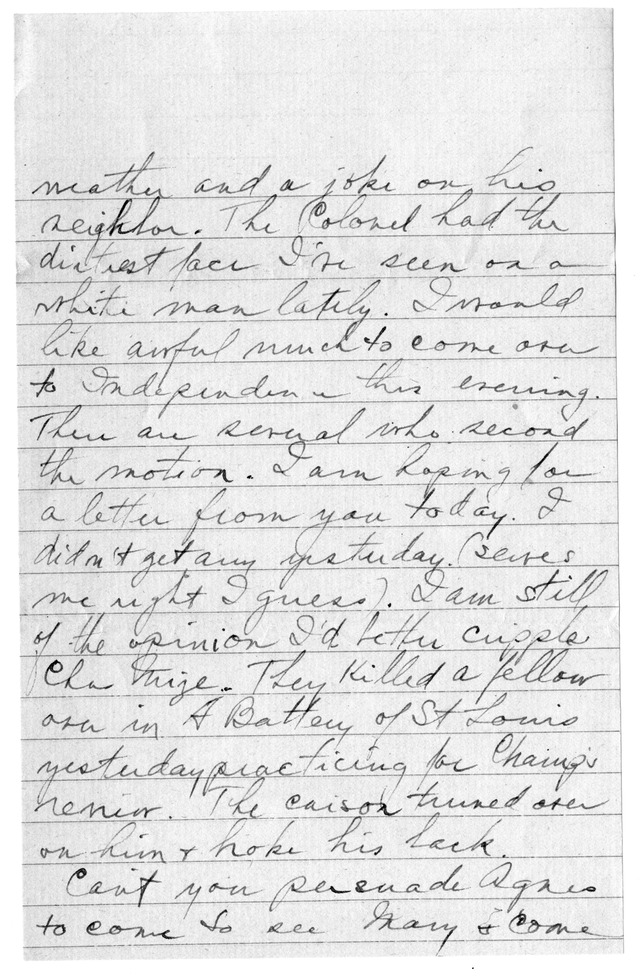 weather and a joke on his
neighbor. The Colonel had the
dirtiest face I've seen on a
white man lately. I would
like awful much to come over
to Independence this evening.
There are several who second
the motion. I am hoping for
a letter from you today. I
didn't get any yesterday. (serves
me right I guess). I am still
of the opinion I'd better cripple
Cha Mize. They killed a fellow
over in A Battery of St Louis
yesterday practicing for Chaing's
review. The caison turned over
on him & broke his back.
Can't you persuade Agnes
to come to see Mary & come